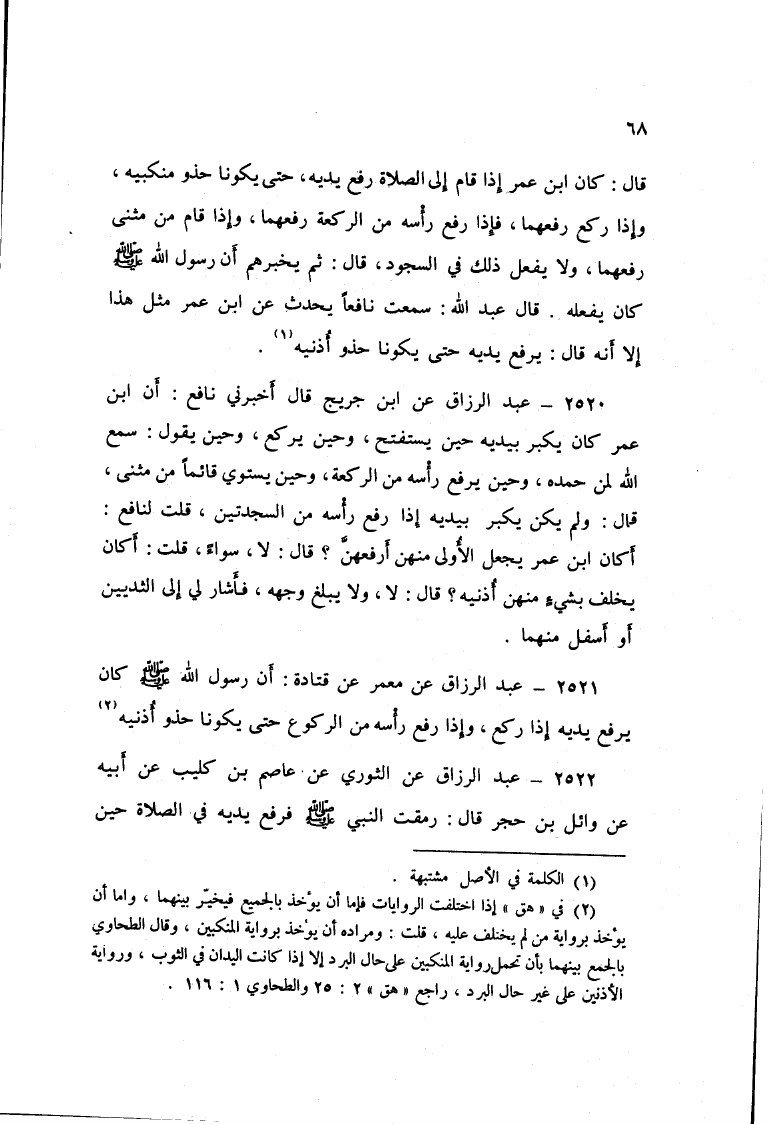 ٦٨
قال : كان ابن عمر إذا قام إلى الصلاة رفع يديه، حتى يكونا حذو منكبيه ،
وإذا ركع رفعهما ، فإذا رفع رأسه من الركعة رفعهما ، وإذا قام من مثنى
رفعهما ، ولا يفعل ذلك في السجود ، قال : ثم يخبرهم أن رسول الله ﷺ
كان يفعله . قال عبد الله : سمعت نافعاً يحدث عن ابن عمر مثل هذا
إلا أنه قال : يرفع يديه حتى يكونا حذو أُذنيه (١) .
٢٥٢٠ – عبد الرزاق عن ابن جريج قال أخبرني نافع : أن ابن
عمر كان يكبر بيديه حين يستفتح ، وحين يركع ، وحين يقول : سمع
الله لمن حمده ، وحين يرفع رأسه من الركعة ، وحين يستوي قائماً من مثنى ،
قال : ولم يكن يكبر بيديه إذا رفع رأسه من السجدتين ، قلت لنافع :
أكان ابن عمر يجعل الأُولى منهن أرفعهنَّ ؟ قال : لا ، سواءً ، قلت : أكان
يخلف بشيءٍ منهن أُذنيه ؟ قال : لا ، ولا يبلغ وجهه ، فأشار لي إلى الثديين
أو أسفل منهما .
٢٥٢١ – عبد الرزاق عن معمر عن قتادة : أن رسول الله ﷺ كان
يرفع يديه إذا ركع ، وإذا رفع رأسه من الركوع حتى يكونا حذو أُذنيه (٢)
٢٥٢٢ – عبد الرزاق عن الثوري عن عاصم بن كليب عن أبيه
عن وائل بن حجر قال : رمقت النبي ﷺ فرفع يديه في الصلاة حين
(١) الكلمة في الأصل مشتبهة .
(٢) في « هق » إذا اختلفت الروايات فإما أن يؤخذ بالجميع فيخيّر بينهما ، واما أن
يؤخذ برواية من لم يختلف عليه ، قلت : ومراده أن يؤخذ برواية المنكبين ، وقال الطحاوي
بالجمع بينهما بأن تحمل رواية المنكبين على حال البرد إلا إذا كانت اليدان في الثوب ، ورواية
الأذنين على غير حال البرد ، راجع « هق » ٢ : ٢٥ والطحاوي ١ : ١١٦ .